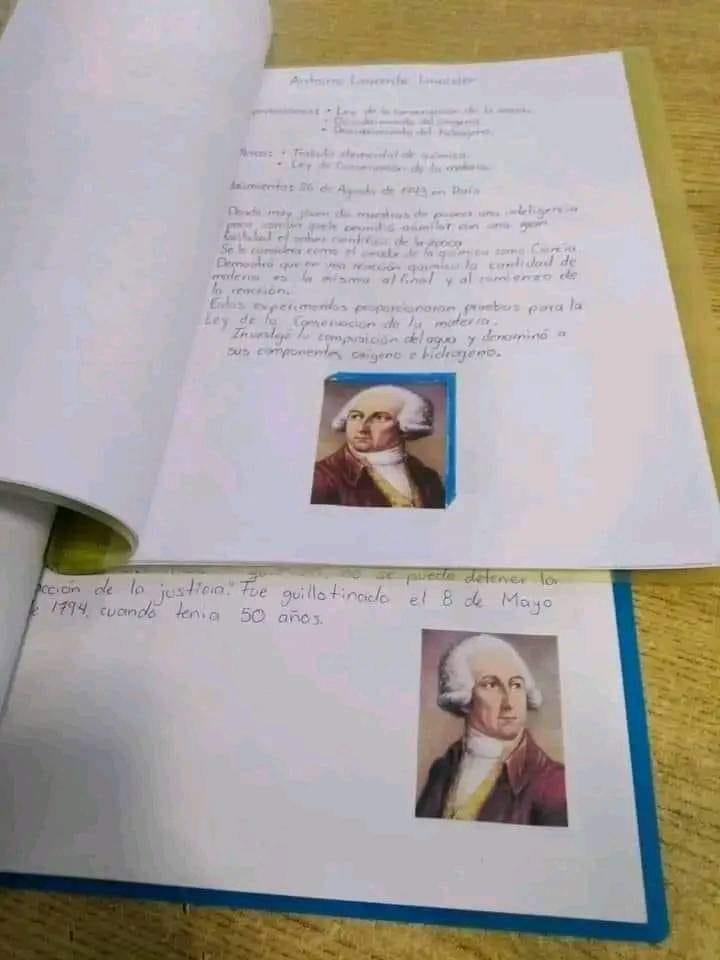 Antoine Laurente Lavoisier
• Ley de la conservación de la materia.
• Descubrimiento del oxígeno
• Descubrimiento del hidrogeno.
• Tratado elemental de química.
• Ley de Conservación de la materia.
26 de Agosto de 1743 en París
Desde muy joven dio muestras de poseer una inteligencia
poco común que le permitió asimilar con una gran
facilidad el saber científico de la época
Se le considera como el creador de la química como Ciencia
Demostró que en una reacción química la cantidad de
materia es la misma al final y al comienzo de
la reacción.
Estos experimentos proporcionaron pruebas para la
Ley de la Conservación de la materia.
Investigó la composición del agua y denominó a
sus componentes oxígeno e hidrógeno.
no se puede detener la
acción de la justicia." Fue guillotinado el 8 de Mayo
1794, cuando tenia 50 años.